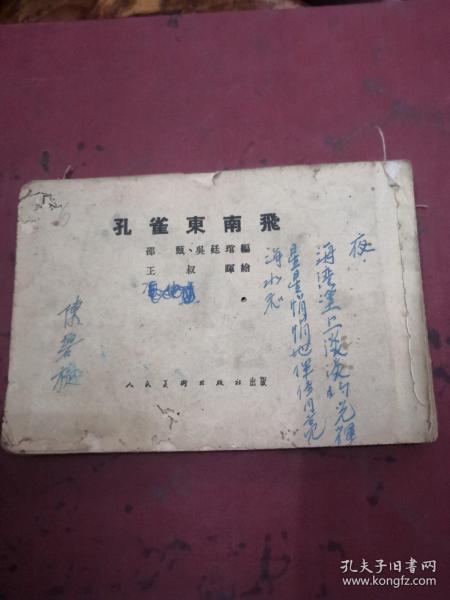 孔雀東南飛
邵甄、吳廷琯編
王叔暉繪
人民美術出版社出版
陳碧
夜
海湾塗上淡淡的光輝
星星悄悄地伴侍月亮
海水
孔夫子旧书网
www.kongfz.com